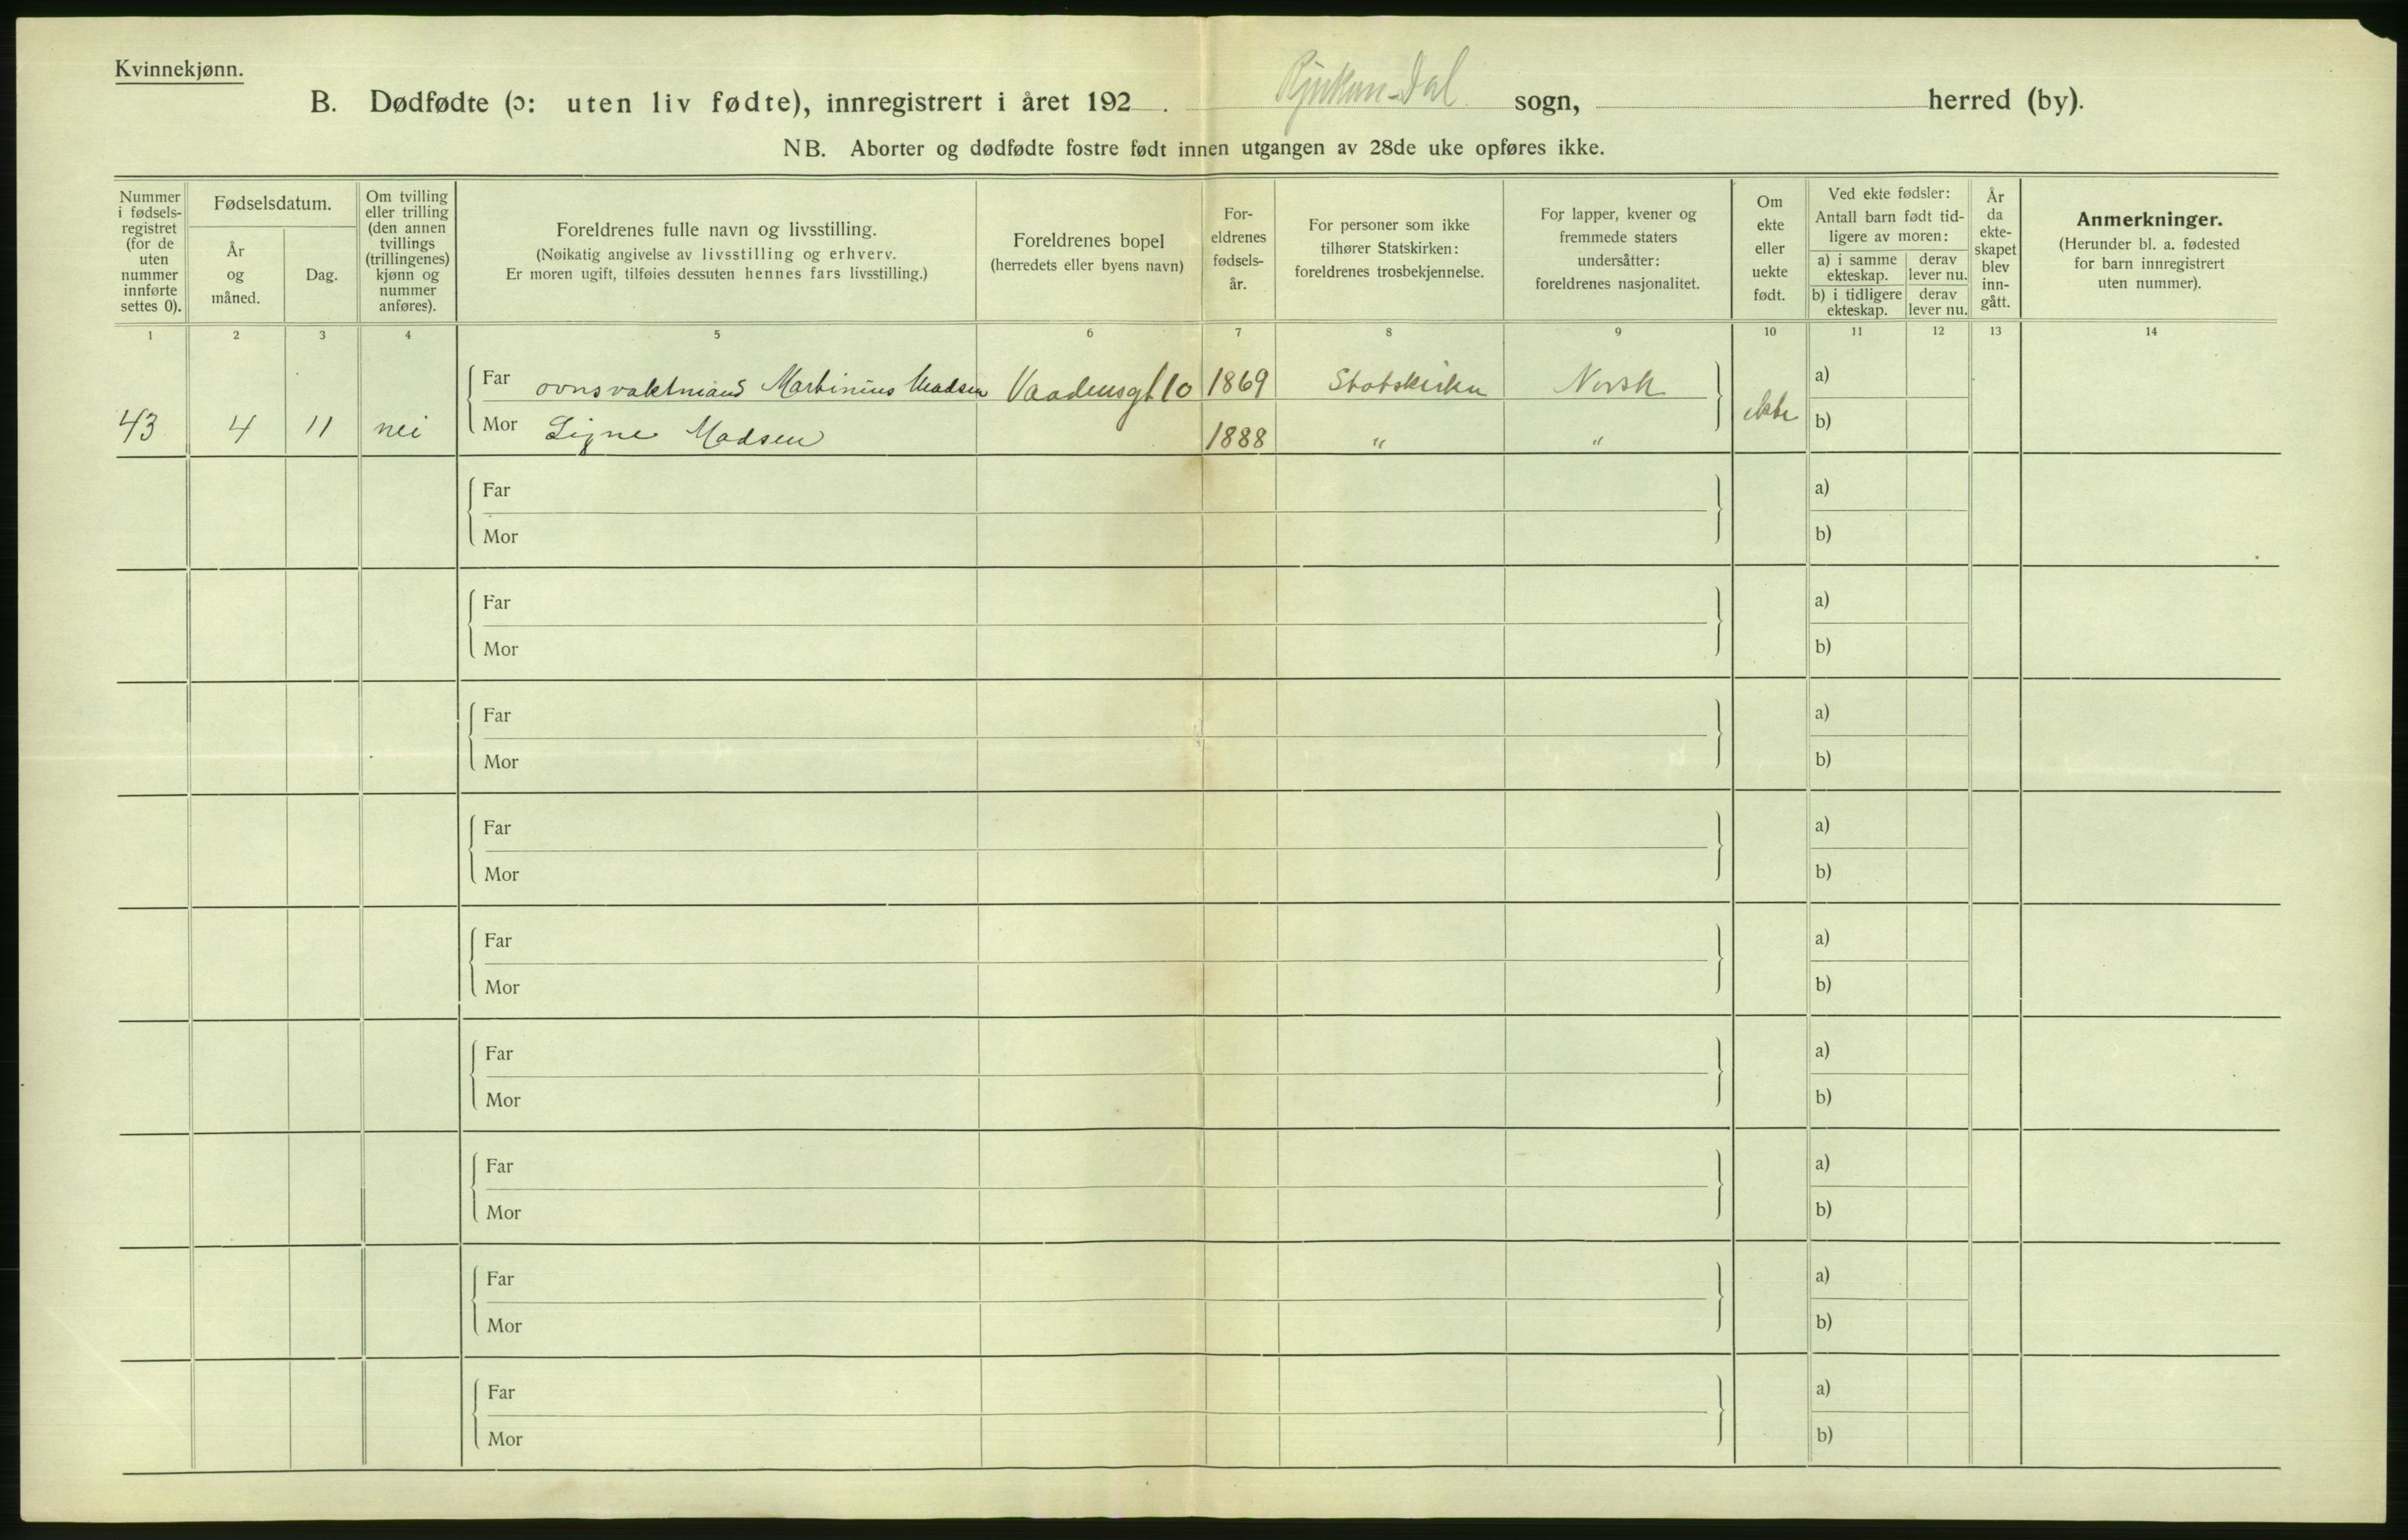 Kvinnekjønn.
B. Dødfødte (ɔ: uten liv fødte), innregistrert i året 192 . Rjukan-Dal sogn, herred (by).
NB. Aborter og dødfødte fostre født innen utgangen av 28de uke opføres ikke.
Nummer i fødsels-registret (for de uten nummer innførte settes 0).
Fødselsdatum.
År og måned.
Dag.
Om tvilling eller trilling (den annen tvillings (trillingenes) kjønn og nummer anføres).
Foreldrenes fulle navn og livsstilling.
(Nøikatig angivelse av livsstilling og erhverv.
Er moren ugift, tilføies dessuten hennes fars livsstilling.)
Foreldrenes bopel
(herredets eller byens navn)
For-eldrenes fødsels-år.
For personer som ikke tilhører Statskirken: foreldrenes trosbekjennelse.
For lapper, kvener og fremmede staters undersåtter: foreldrenes nasjonalitet.
Om ekte eller uekte født.
Ved ekte fødsler:
Antall barn født tid-ligere av moren:
a) i samme ekteskap.
derav lever nu.
b) i tidligere ekteskap.
derav lever nu.
År da ekte-skapet blev inn-gått.
Anmerkninger.
(Herunder bl. a. fødested for barn innregistrert uten nummer).
1 2 3 4 5 6 7 8 9 10 11 12 13 14
Far ovnsvaktmand Martinius Madsen Vaadensgt 10 1869 Statskirken Norsk a)
43 4 11 nei Mor Signe Madsen 1888 " " ekte b)
Far a)
Mor b)
Far a)
Mor b)
Far a)
Mor b)
Far a)
Mor b)
Far a)
Mor b)
Far a)
Mor b)
Far a)
Mor b)
Far a)
Mor b)
Far a)
Mor b)